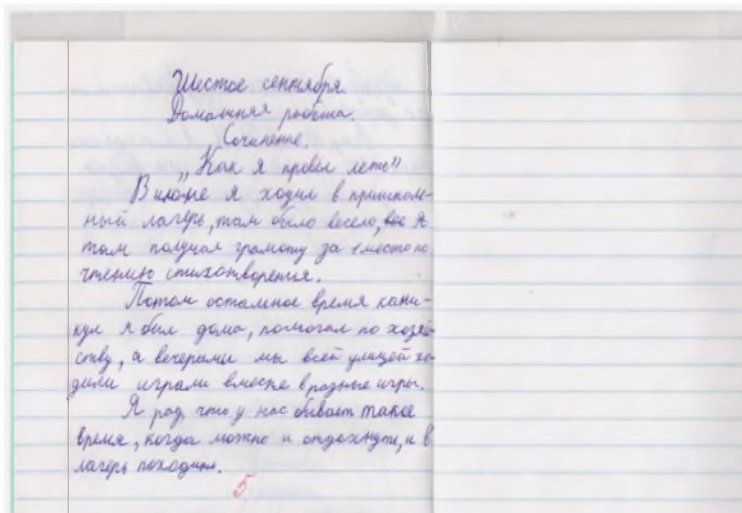 Шестое сентября.
Домашняя работа.
Сочинение.
„Как я провёл лето"
В июне я ходил в пришколь-
ный лагерь, там было весело, я
там получил грамоту за 1 место по
чтению стихотворения.
Потом остальное время кани-
кул я был дома, помогал по хозяй-
ству, а вечерами мы всей улицей хо-
дили играли вместе в разные игры.
Я рад, что у нас бывает такое
время, когда можно и отдохнуть, и в
лагерь походить.
5